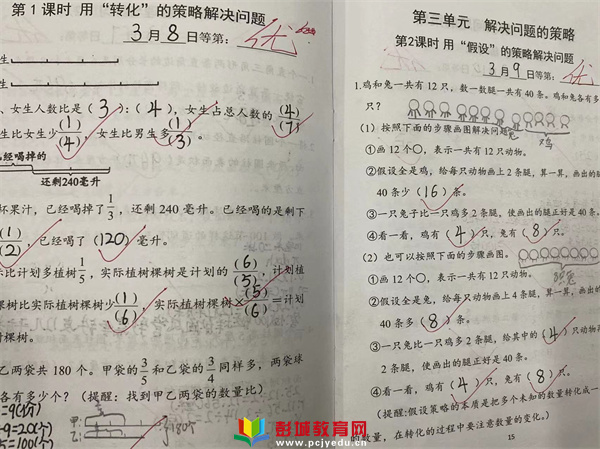 第1课时 用“转化”的策略解决问题
3月8日等第: 优
生
生
、女生人数比是(3):(4),女生占总人数的(4)/(7)
生比女生少(1)/(4),女生比男生多(1)/(3)。
已经喝掉的
还剩240毫升
杯果汁,已经喝掉了1/3,还剩240毫升。已经喝的是剩下
(1)/(2),已经喝了(120)毫升。
际比计划多植树1/5,实际植树棵树是计划的(6)/(5),计划植
棵树比实际植树棵树少(1)/(6),实际植树棵树×(5)/(6)=计划
树棵树。
乙两袋共180个。甲袋的3/5和乙袋的3/4同样多,两袋球
各有多少个?(提醒:找到甲乙两袋的数量比)
=9(个)
=9=20(个)
5=100(个)
甲:
乙:
180个
第三单元 解决问题的策略
第2课时 用“假设”的策略解决问题
3月9日等第: 优
1.鸡和兔一共有12只,数一数腿一共有40条。鸡和兔各有多
只?
兔 鸡
(1)按照下面的步骤画图解决问题。
①画12个○,表示一共有12只动物。
②假设全是鸡,给每只动物画上2条腿,算一算,画出的腿
40条少(16)条。
③一只兔子比一只鸡多2条腿,使画出的腿正好是40条。
④看一看,鸡有(4)只,兔有(8)只。
(2)也可以按照下面的步骤画图。
①画12个○,表示一共有12只动物。
②假设全是兔,给每只动物画上4条腿,算一算,画出的
40条多(8)条。
③一只兔比一只鸡多2条腿,给其中的(4)只动物
2条腿,使画出的腿正好是40条。
④看一看,鸡有(4)只,兔有(8)只。
(提醒:假设策略的本质是把多个未知的数量转化成一
的数量,在转化的过程中要注意数量的变化。)
15
彭城教育网
www.pcjyedu.cn